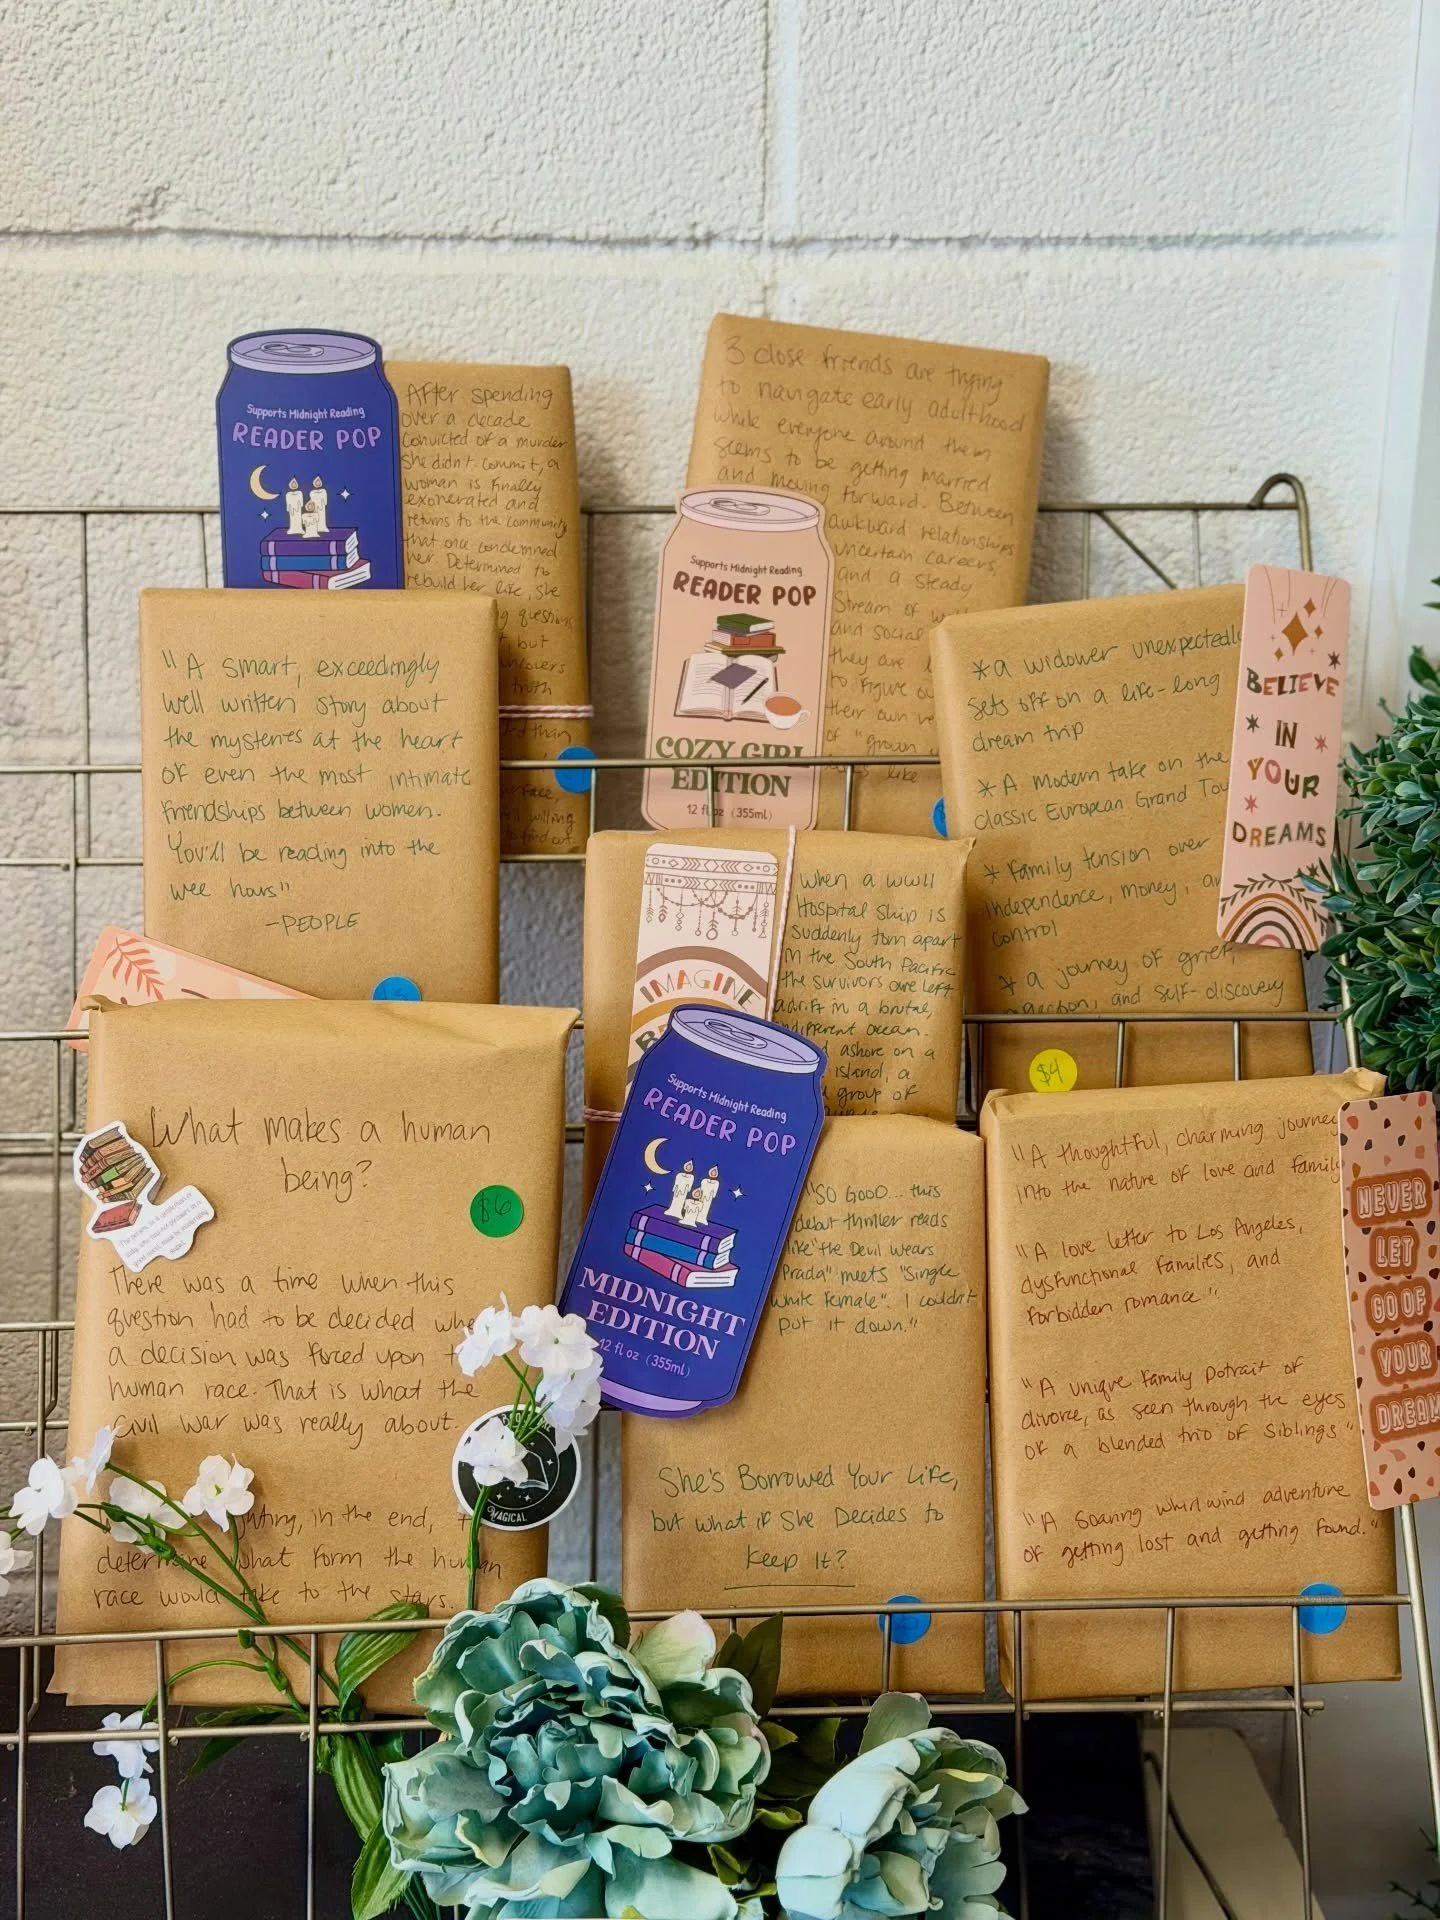 Supports Midnight Reading
READER POP
After spending
over a decade
convicted of a murder
she didn't commit, a
woman is finally
exonerated and
returns to the community
that once condemned
her. Determined to
rebuild her life, she
questions
but
truth
than
willing
3 close friends are trying
to navigate early adulthood
while everyone around them
seems to be getting married
and moving forward. Between
awkward relationships
uncertain careers,
and a steady
Stream of
and social
they are
to figure
their own
of "grown
like
Supports Midnight Reading
READER POP
COZY GIRL
EDITION
12 fl oz (355ml)
"A smart, exceedingly
well written story about
the mysteries at the heart
of even the most intimate
friendships between women.
You'll be reading into the
wee hours"
-PEOPLE
*a widower unexpectedly
sets off on a life-long
dream trip
* A modern take on the
classic European Grand
* Family tension over
independence, money,
control
* a journey of grief,
and self-discovery
$4
BELIEVE
IN
YOUR
DREAMS
IMAGINE
When a WWII
Hospital Ship is
suddenly torn apart
in the South Pacific
the survivors are left
adrift in a brutal,
indifferent ocean.
ashore on a
island, a
group of
Supports Midnight Reading
READER POP
MIDNIGHT
EDITION
12 fl oz (355ml)
What makes a human
being?
$6
There was a time when this
question had to be decided
a decision was forced upon
human race. That is what the
Civil War was really about.
in the end,
determine what form the human
race would take to the stars.
MAGICAL
"SO GOOD... this
debut thriller reads
like "the Devil wears
Prada" meets "Single
White Female". I couldn't
put it down."
She's Borrowed Your Life,
but what if She Decides to
Keep It?
"A thoughtful, charming journey
into the nature of love and family
"A love letter to Los Angeles,
dysfunctional families, and
forbidden romance"
"A unique family potrait of
divorce, as seen through the eyes
of a blended trio of siblings"
"A soaring whirlwind adventure
of getting lost and getting found."
NEVER
LET
GO OF
YOUR
DREAM